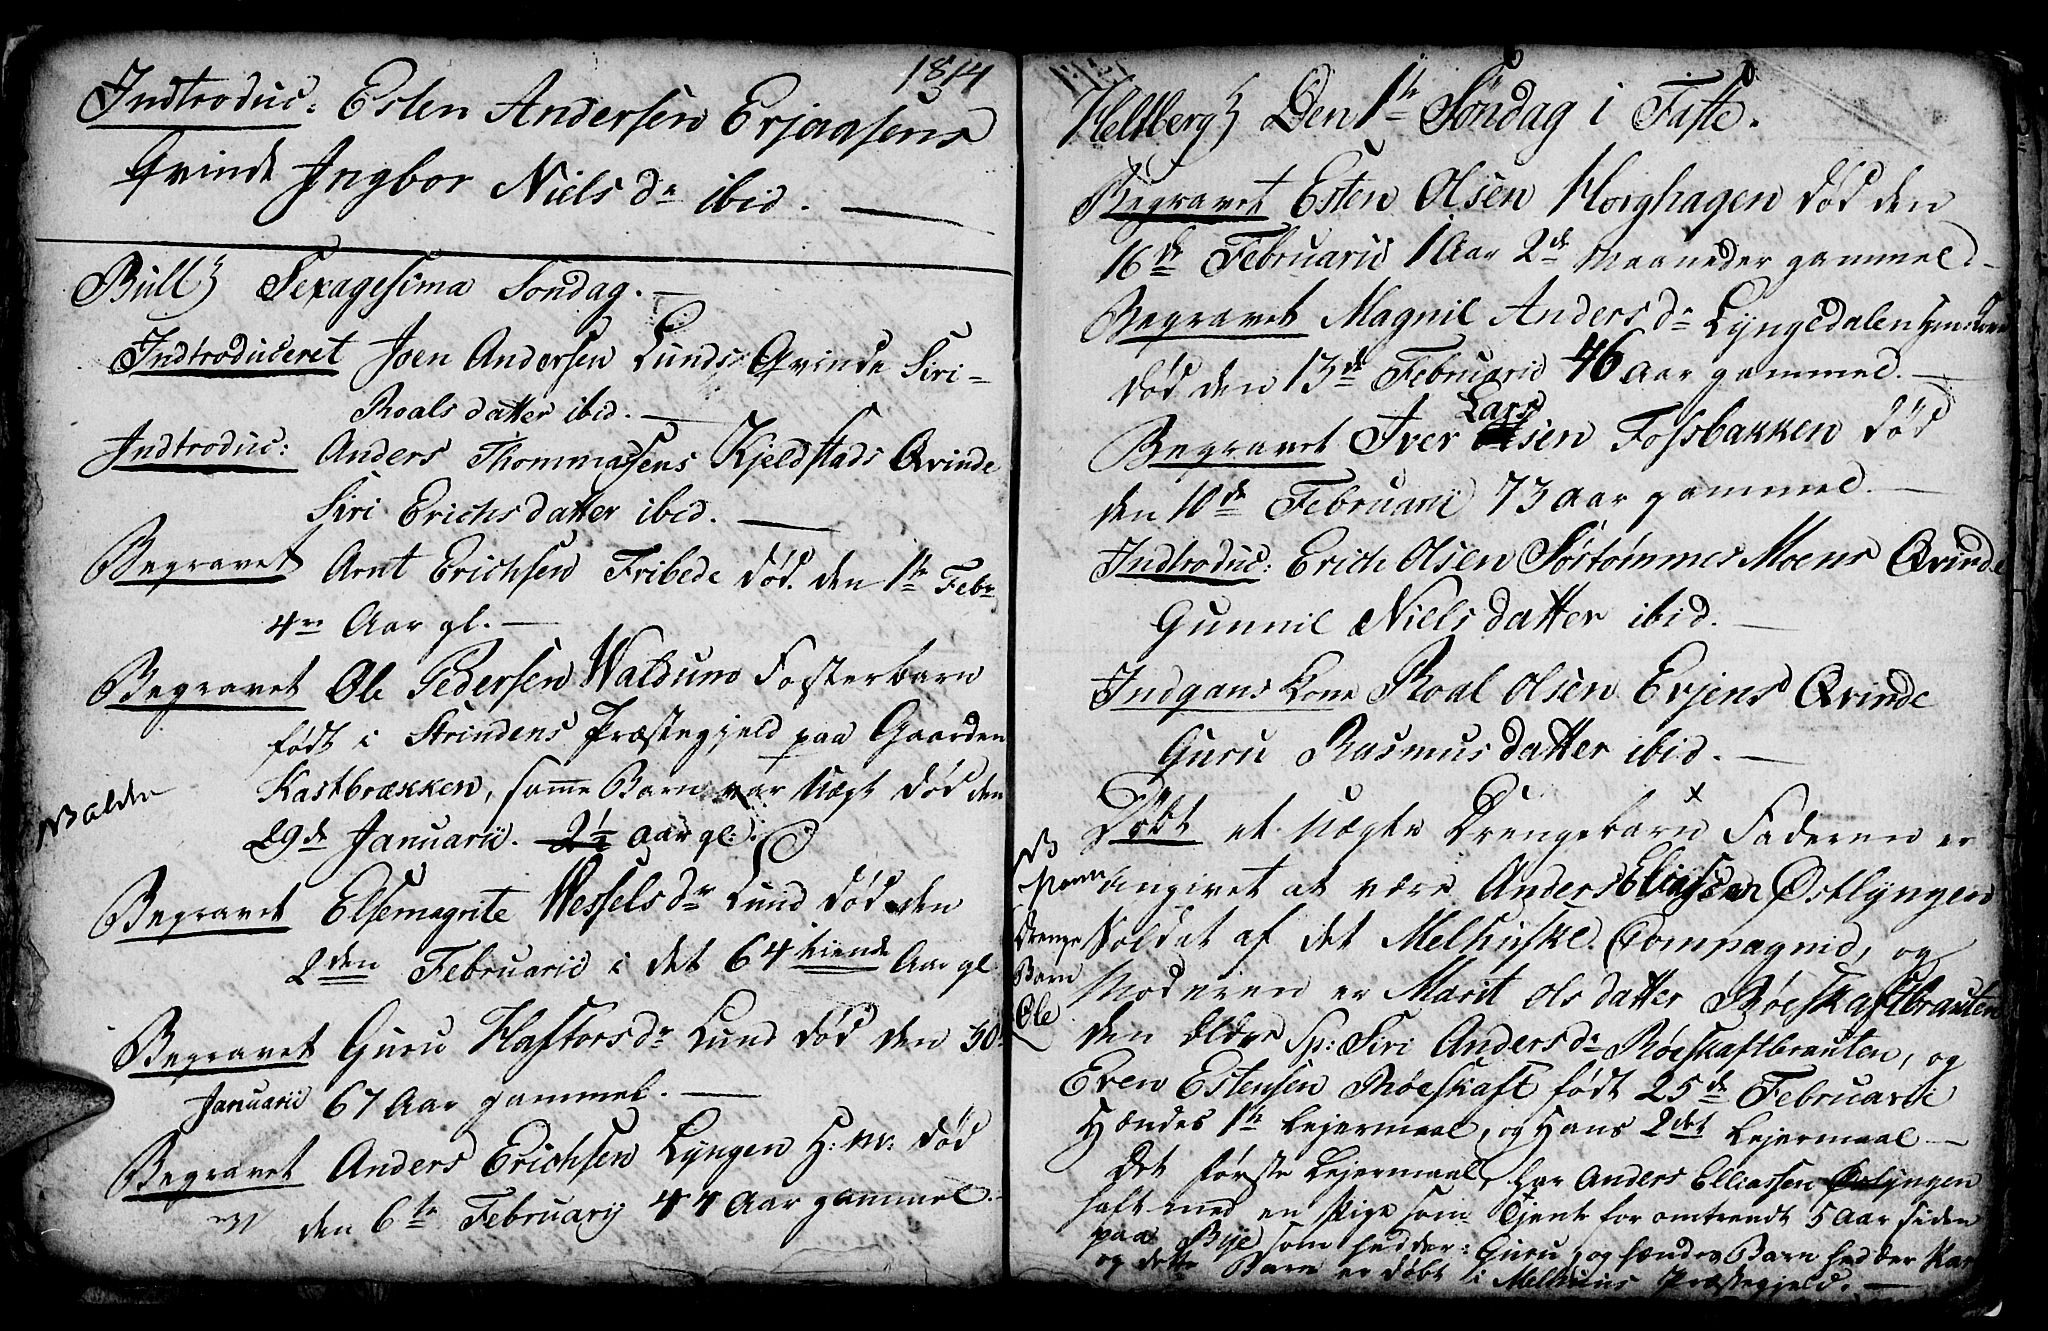 1814
Indtroduc: Esten Andersen Erjaasens
Qvinde Ingbor Niels dr ibid. —
Büll} Sexagesima Sondag. —
Indtroduceret Joen Andersen Lunds Qvinde Siri
Roals datter ibid. —
Indtroduc: Anders Thommasens Kjeldstads Qvinde
Siri Erichsdatter ibid. —
Begravet Arnt Erichsen Fribede død. den 1te Febr
4re Aar gl. —
Begravet Ole Pedersen Waldsund Fosterbarn
født i Strindens Præstegjeld paa Gaarden
Kastbrækken, samme Barn var Uægt død den
NB alder
29de Januarii. 2½ aar gl:
Begravet Elsemagrite Wessels dr Lund død den
2den Februarii i det 64 tiende Aar gl
Begravet Guru Hastors dr Lund død den 30
Januarii 67 Aar gammel. —
Begravet Anders Erichsen Lyngen H: m: død
den 6te Februarij 44 Aar gammel. —
Heltberg} Den 1te Søndag i Faste.
Begravet Esten Olsen Horghagen død den
16de Februarii 1 Aar 2de Maaneder gammel —
Begravet Magnil Anders dr Lÿngedalen
død den 13de Februarii 46 Aar gammel. —
Lars
Begravet Iver Olsen Fossbakken død
den 10de Februarii 73 aar gammel. —
Indtroduc: Erich Olsen Søstømmes Moens Qvinde
Gunnil Nielsdatter ibid. —
Indgans Kone Roal Olsen Evjens Qvinde
Guru Rasmusdatter ibid. —
Døbt et Uægte Drengebarn x Faderen er
NB
angivet at være Anders Eliassen Østlyngen
Soldat af det Melhuiske Compagnie, og
Drenge
Barn
Ole
Moderen er Marit Olsdatter Røeskaftbrauten
den Eldre Sp: Siri Anders dr Røeskaftbrauten, og
Even Estensen Røeskaft født 25de Februarii
Hændes 1te Lejermaal, og Hans 2det Lejermaal —
Det første Lejermaal, har Anders Elliassen Østlyngen
haft med en Pige som Tjente for omtrendt 5 Aar siden
paa Bÿe som hedder: Guru, og hændes Barn hedder Kar
og dette Barn er døbt i Melhuus Præstegjeld. —